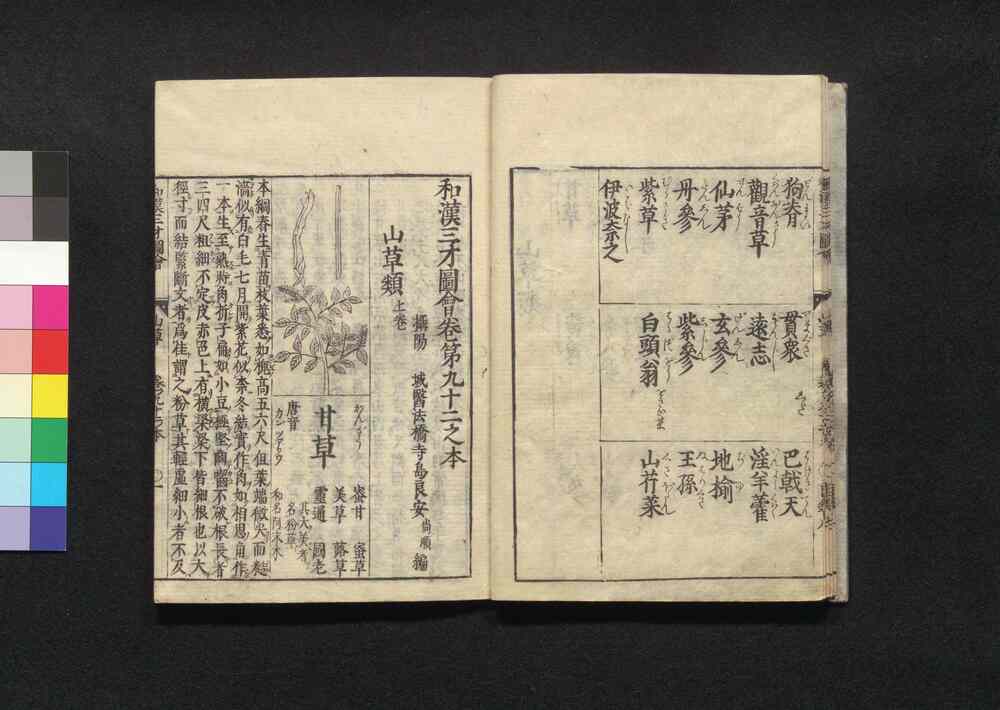 狗脊
觀音草
仙茅
丹參
紫草
伊波奈之
貫衆
遠志
玄參
紫參
白頭翁
巴戟天
淫羊藿
地榆
王孫
山芹菜
和漢三才圖會卷第九十二之本
攝陽 城醫法橋寺島良安尚順 編
山草類 上卷
甘草
唐音
蜜甘 蜜草
美草 蕗草
靈通 國老
其大美者
名粉草
本綱春生青苗枝葉悉如槐高五六尺但葉端微尖而
濇似有白毛七月開紫花似柰冬結實作角如相思角作
一本生至熟時角拆子扁如小豆極堅齒嚙不破根長者
三四尺粗細不定皮赤色上有橫梁梁下皆細根也以大
徑寸而結緊斷文者爲佳謂之粉草其輕虛細小者不及